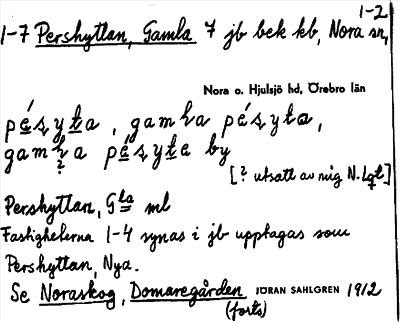 1-2
1-7 Pershyttan, Gamla 7 jb bek kb, Nora sn,
Nora o. Hjulsjö hd, Örebro län
pésyta, gamha pésyta,
gamha pésyta by
?
[? utsatt av mig N. Lgt]
Pershyttan, Gla ml
Fastigheterna 1-4 synas i jb upptagas som
Pershyttan, Nya.
Se Noraskog, Domaregården JÖRAN SAHLGREN 1912
(forts)